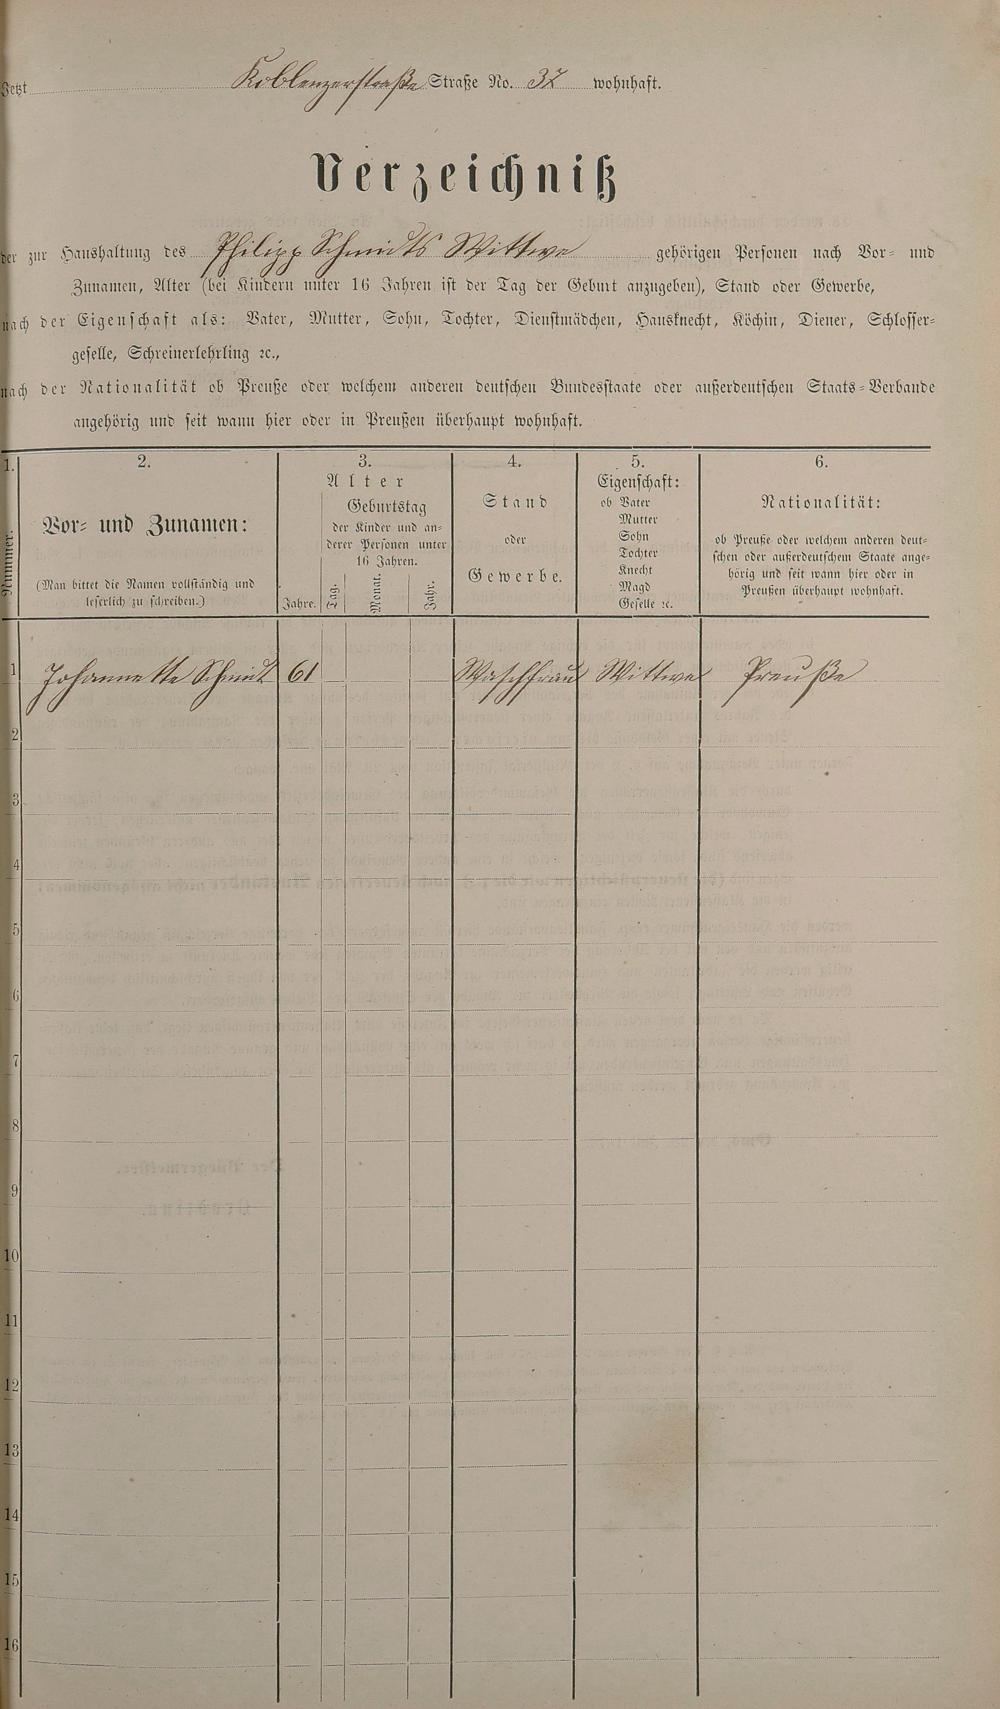 Jetzt Koblenzerstraße Straße No. 32 wohnhaft.
Verzeichniß
der zur Haushaltung des Philipp Schmidts Wittwe gehörigen Personen nach Vor- und
Zunamen, Alter (bei Kindern unter 16 Jahren ist der Tag der Geburt anzugeben), Stand oder Gewerbe,
nach der Eigenschaft als: Vater, Mutter, Sohn, Tochter, Dienstmädchen, Hausknecht, Köchin, Diener, Schlosser-
geselle, Schreinerlehrling ꝛc.,
nach der Nationalität ob Preuße oder welchem anderen deutschen Bundesstaate oder außerdeutschen Staats-Verbande
angehörig und seit wann hier oder in Preußen überhaupt wohnhaft.
1. 2. 3. 4. 5. 6.
Nummer.
Vor- und Zunamen:
(Man bittet die Namen vollständig und
leserlich zu schreiben.)
Alter
Geburtstag
der Kinder und an-
derer Personen unter
16 Jahren.
Jahre. Tag. Monat. Jahr.
Stand
oder
Gewerbe.
Eigenschaft:
ob Vater
Mutter
Sohn
Tochter
Knecht
Magd
Geselle ꝛc.
Nationalität:
ob Preuße oder welchem anderen deut-
schen oder außerdeutschem Staate ange-
hörig und seit wann hier oder in
Preußen überhaupt wohnhaft.
1 Johannette Schmidt 61 Waschfrau Wittwe Preuße
2
3
4
5
6
7
8
9
10
11
12
13
14
15
16